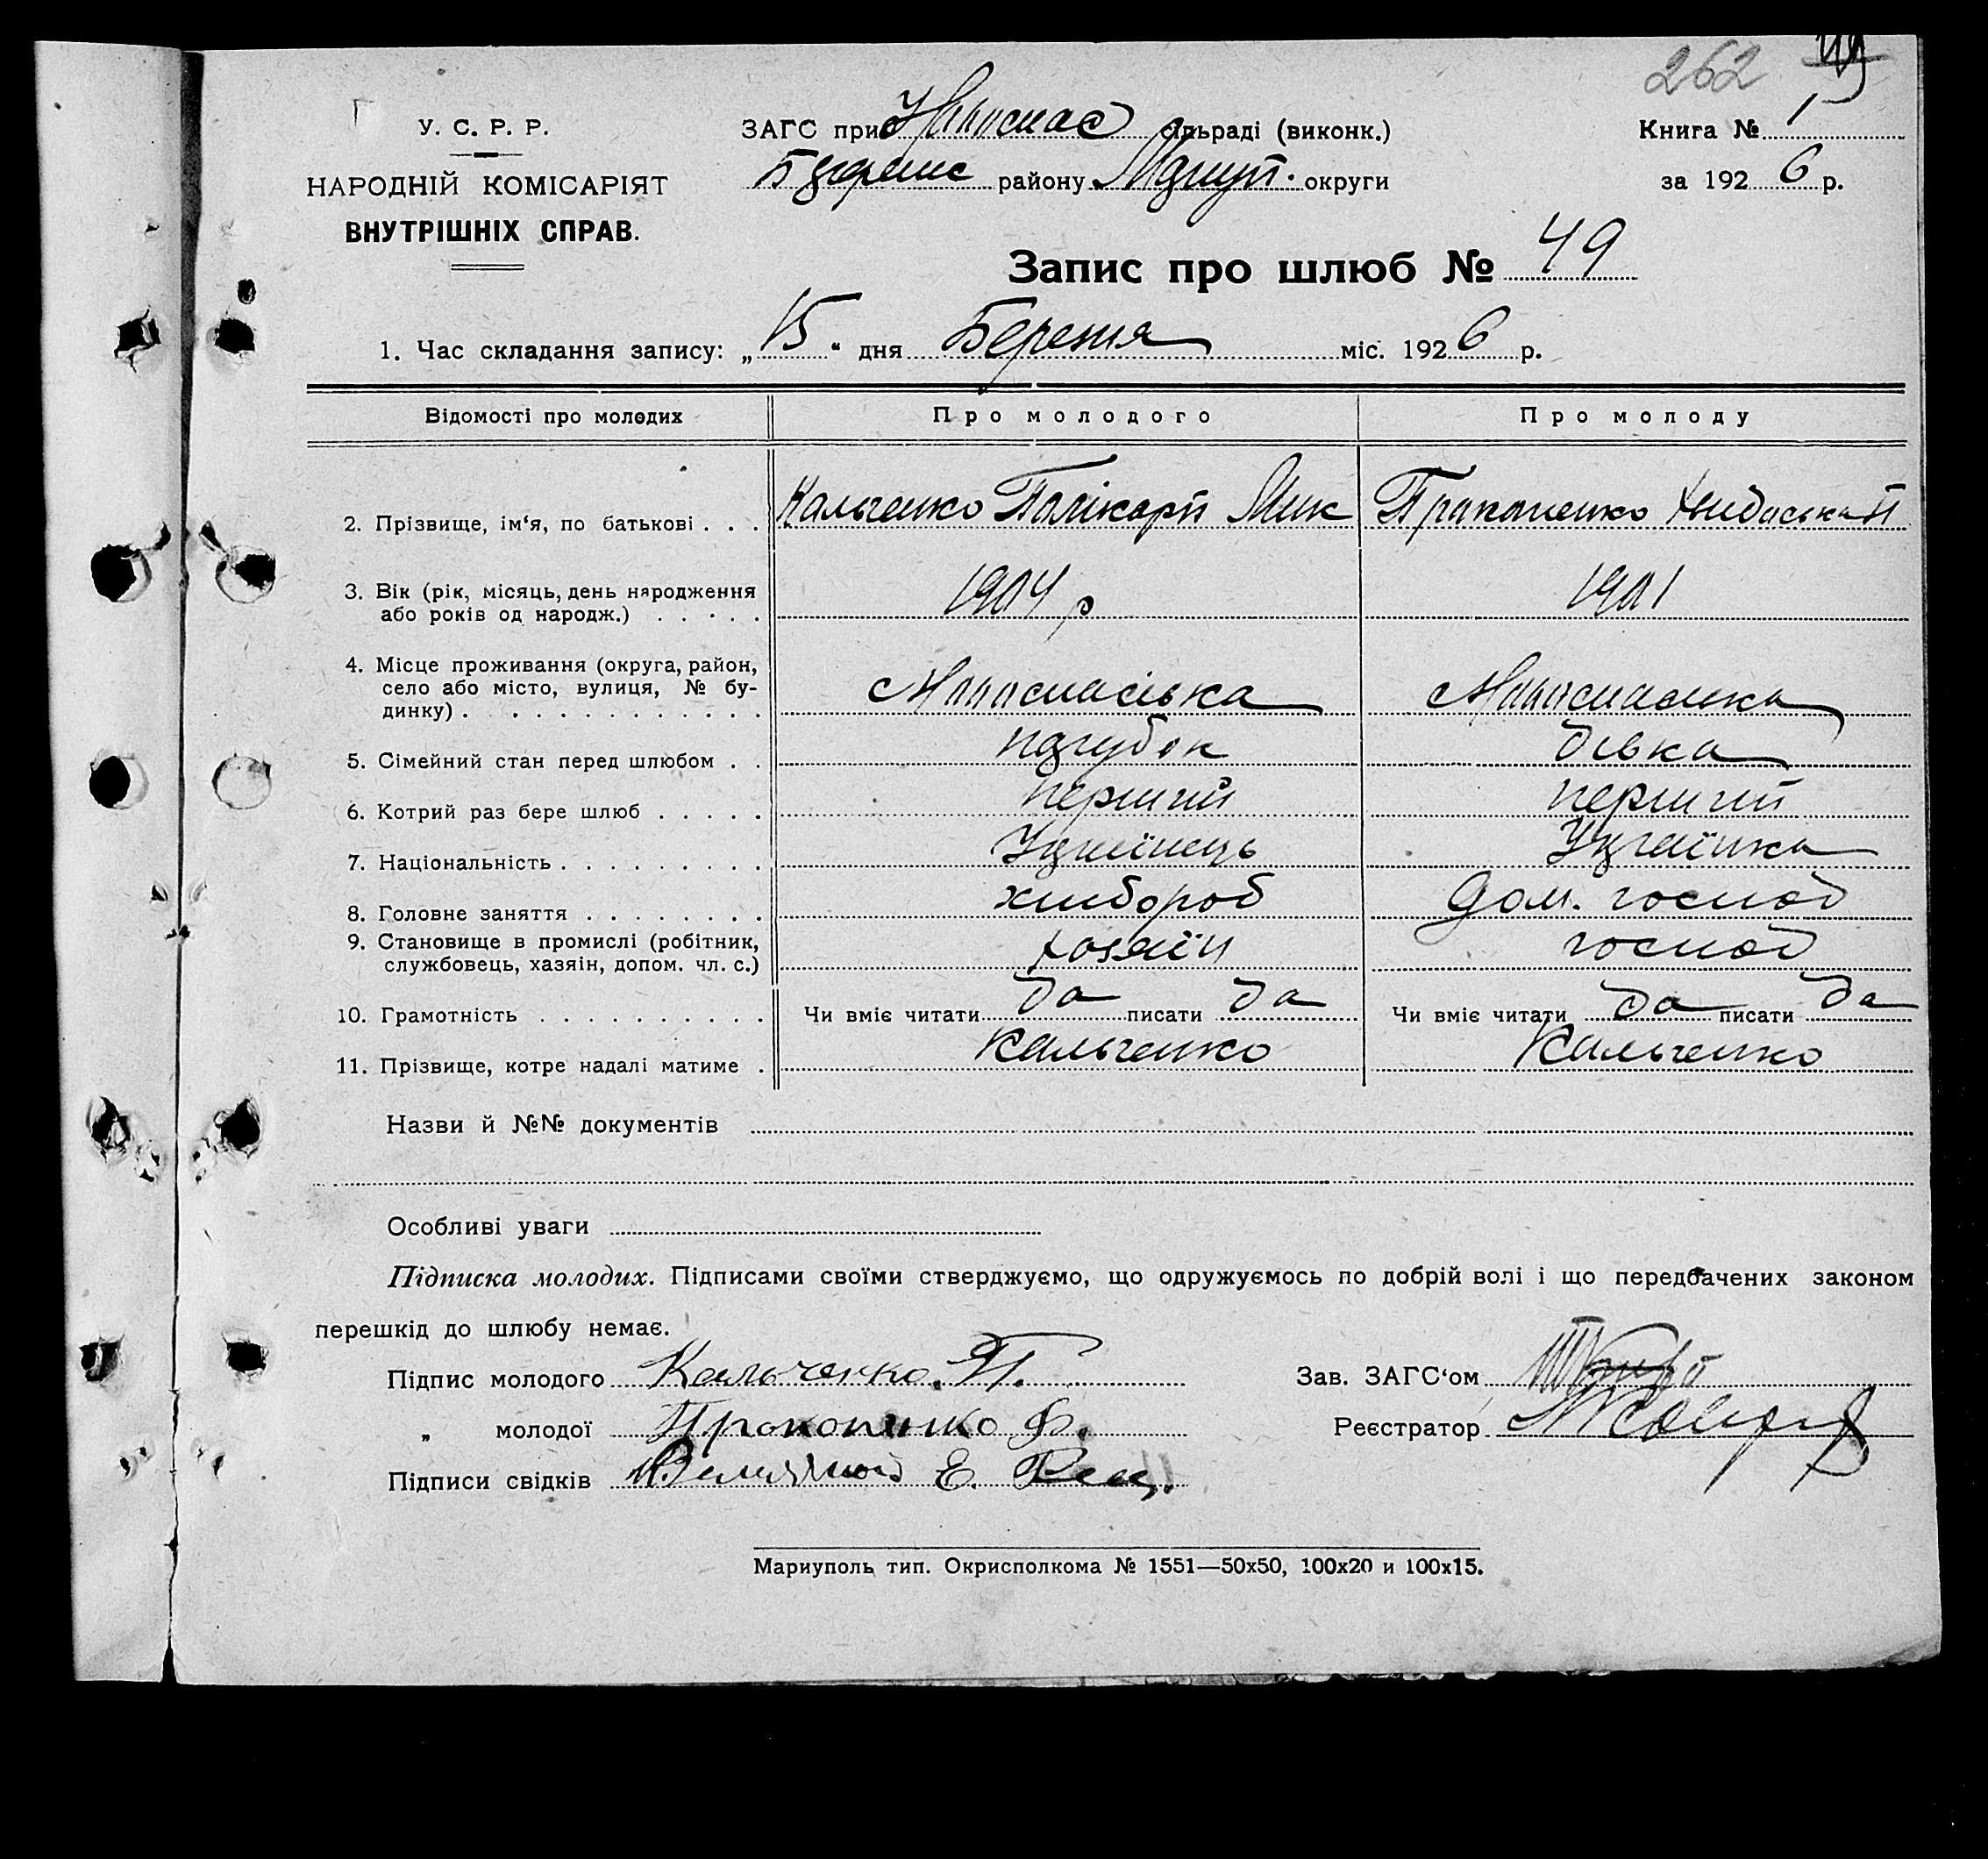 262
У. С. Р. Р.
НАРОДНІЙ КОМІСАРІЯТ
ВНУТРІШНІХ СПРАВ.
ЗАГС при сільраді (виконк.)
району Маріуп. округи
Книга № 1
за 1926 р.
Запис про шлюб № 49
1. Час складання запису: „15“ дня Березня міс. 1926 р.
Відомості про молодих Про молодого Про молоду
2. Прізвище, ім‘я, по батькові . . . Кальченко Полікарп Мик Пракопенко
3. Вік (рік, місяць, день народження
або років од народж.) . . . . . 1904 р 1901
4. Місце проживання (округа, район,
село або місто, вулиця, № бу-
динку) . . . . . . . . . . . .
5. Сімейний стан перед шлюбом . . парубок дівка
6. Котрий раз бере шлюб . . . . . перший перший
7. Національність . . . . . . . . . Украінець Украінка
8. Головне заняття . . . . . . . . хлибороб Дом. господ
9. Становище в промислі (робітник,
службовець, хазяін, допом. чл. с.) хозяїн господ
10. Грамотність . . . . . . . . . . Чи вміє читати да писати да Чи вміє читати да писати да
11. Прізвище, котре надалі матиме . Кальченко Кальченко
Назви й №№ документів
Особливі уваги
Підписка молодих. Підписами своїми стверджуємо, що одружуємось по добрій волі і що передбачених законом
перешкід до шлюбу немає.
Підпис молодого Кальченко. П.
Зав. ЗАГС‘ом
„ молодої Прокопенко Ф.
Реєстратор
Підписи свідків Е.
Мариуполь тип. Окрисполкома № 1551—50х50, 100х20 и 100х15.